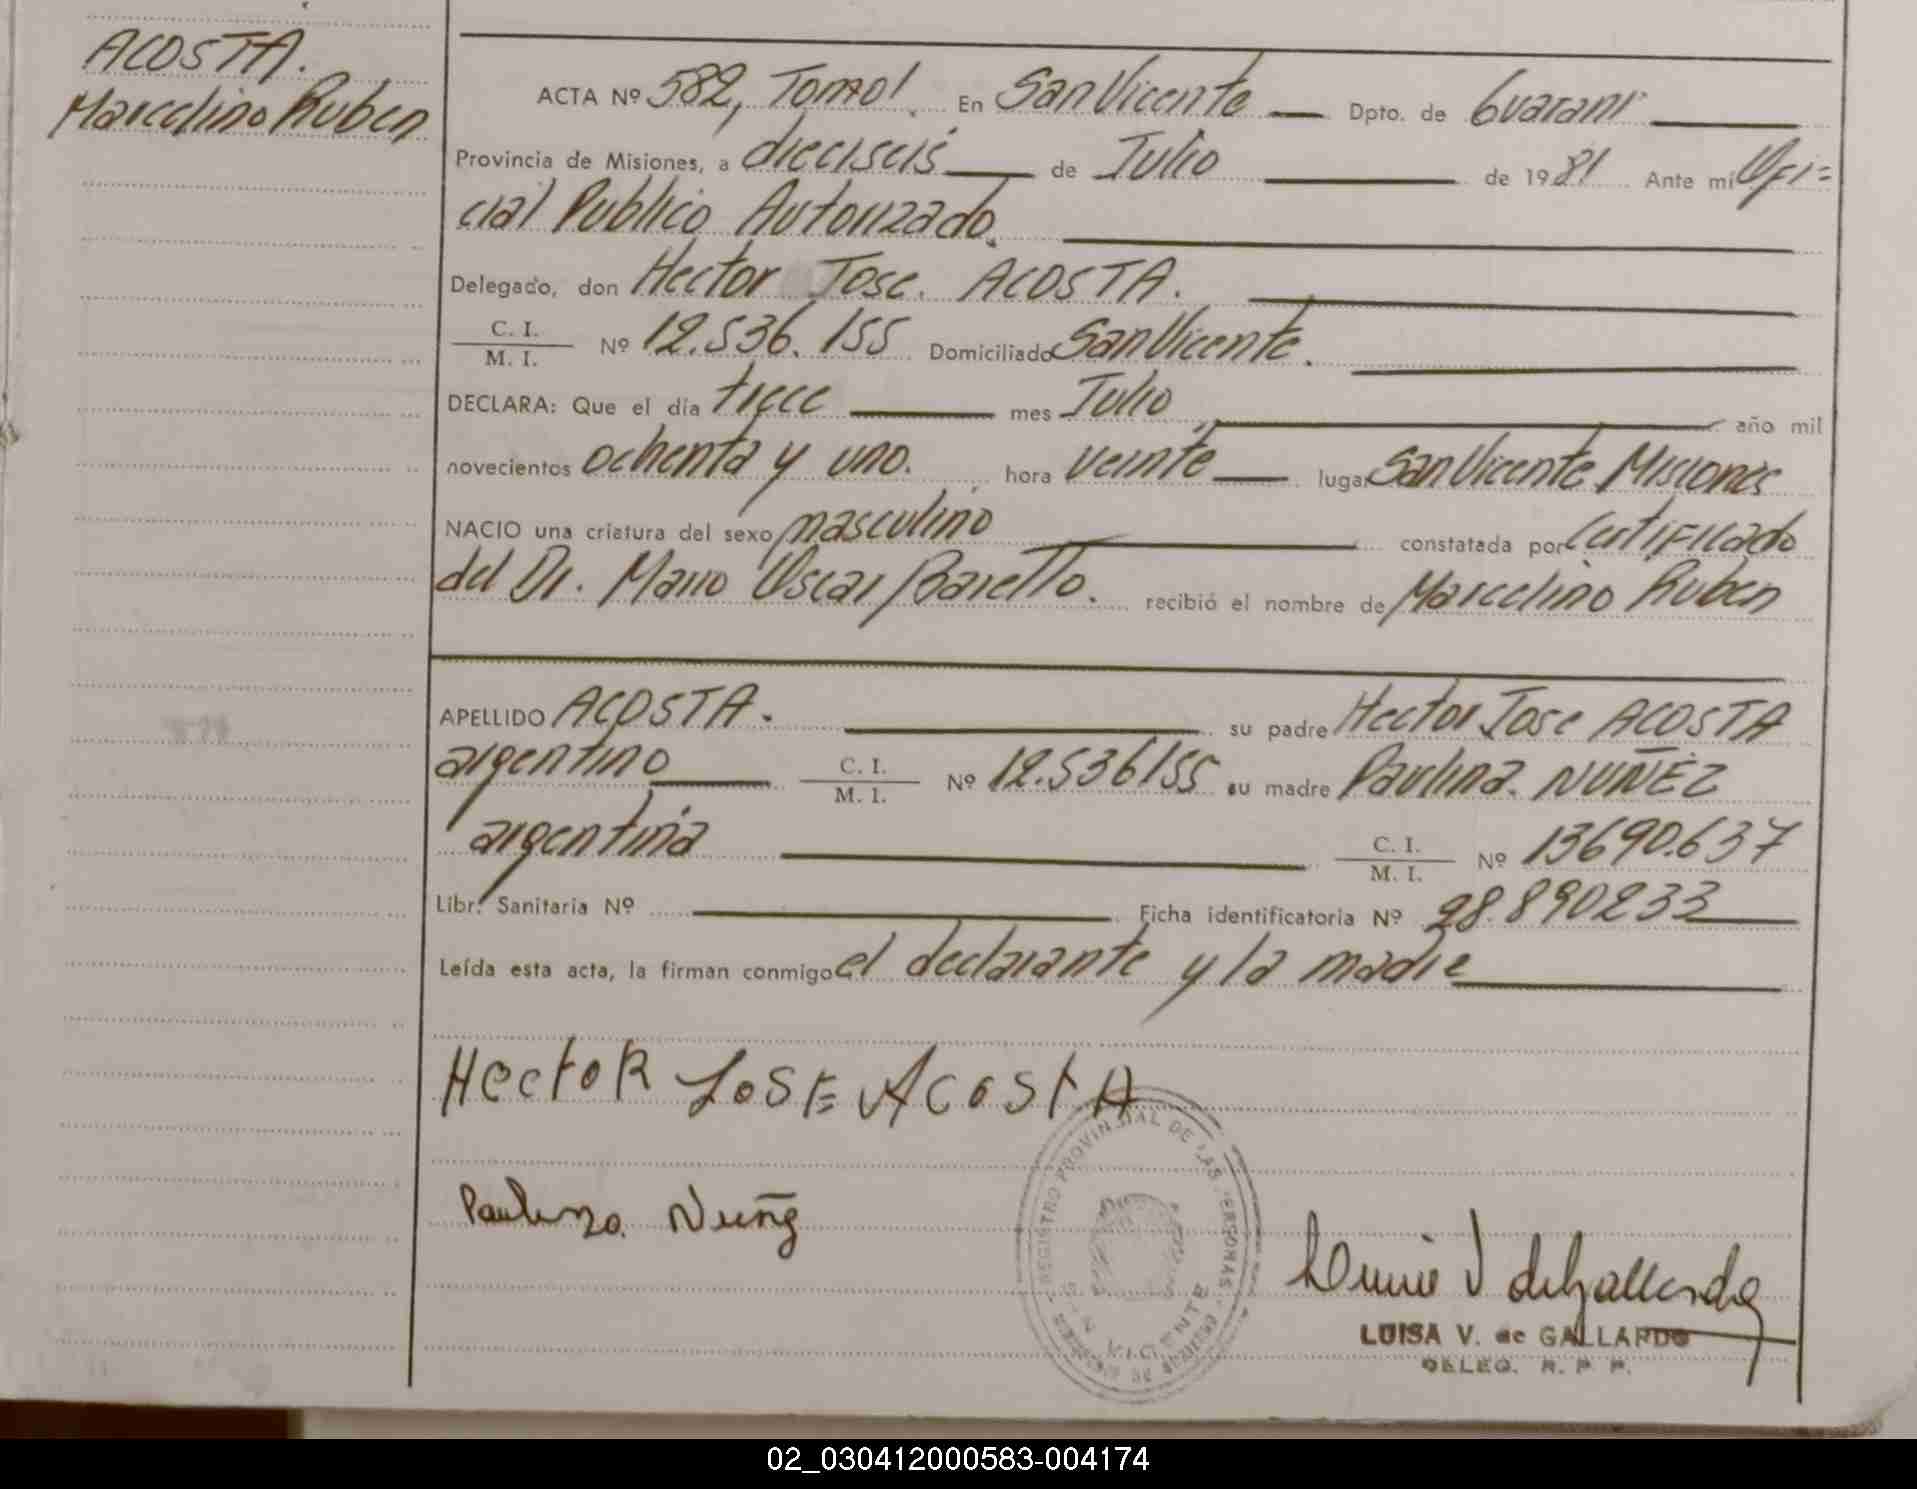 ACOSTA.
Marcelino Ruben
ACTA Nº 582, Tomo I. En San Vicente Dpto. de Guarani
Provincia de Misiones, a dieciseis de Julio de 1981 Ante mi Ofi=
cial Publico Autorizado.
Delegado, don Hector Jose. ACOSTA.
C. I.
M. I. Nº 12.536.155 Domiciliado San Vicente.
DECLARA: Que el día trece mes Julio año mil
novecientos ochenta y uno. hora veinte lugar San Vicente Misiones
NACIO una criatura del sexo masculino constatada por Certificado
del Dr. Mario Oscar Baretto. recibió el nombre de Marcelino Ruben
APELLIDO ACOSTA. su padre Hector Jose ACOSTA
argentino C. I.
M. I. Nº 12.536155 su madre Paulina. NUÑEZ
argentina C. I.
M. I. Nº 13690.637
Libr. Sanitaria Nº Ficha identificatoria Nº 28.890233
Leída esta acta, la firman conmigo el declarante y la madre
HectoR JosE AcostA
Paulina. Nuñez
REGISTRO PROVINSIAL DE LAS PERSONAS
SAN VICENTE
LUISA V. de GALLARDO
DELEG. R. P. P.
02_030412000583-004174